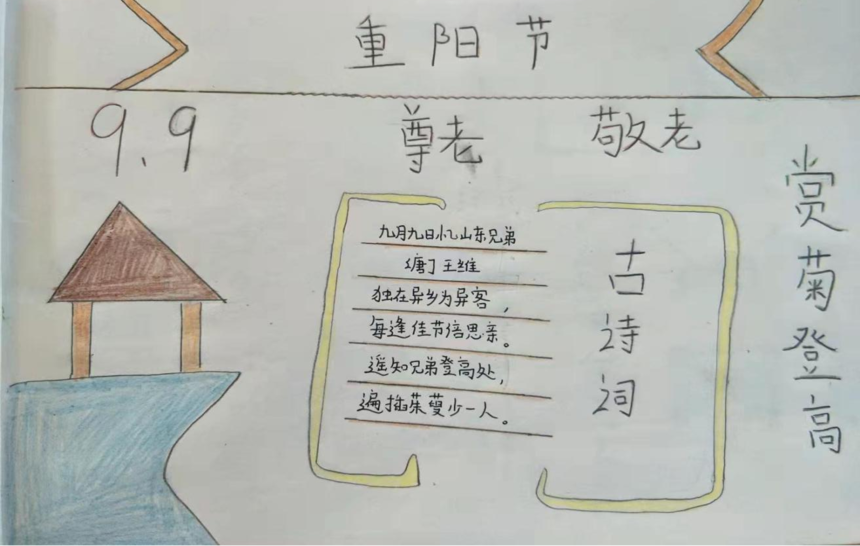 重阳节
9.9
尊老
敬老
赏菊登高
九月九日忆山东兄弟
[唐] 王维
独在异乡为异客，
每逢佳节倍思亲。
遥知兄弟登高处，
遍插茱萸少一人。
古诗词